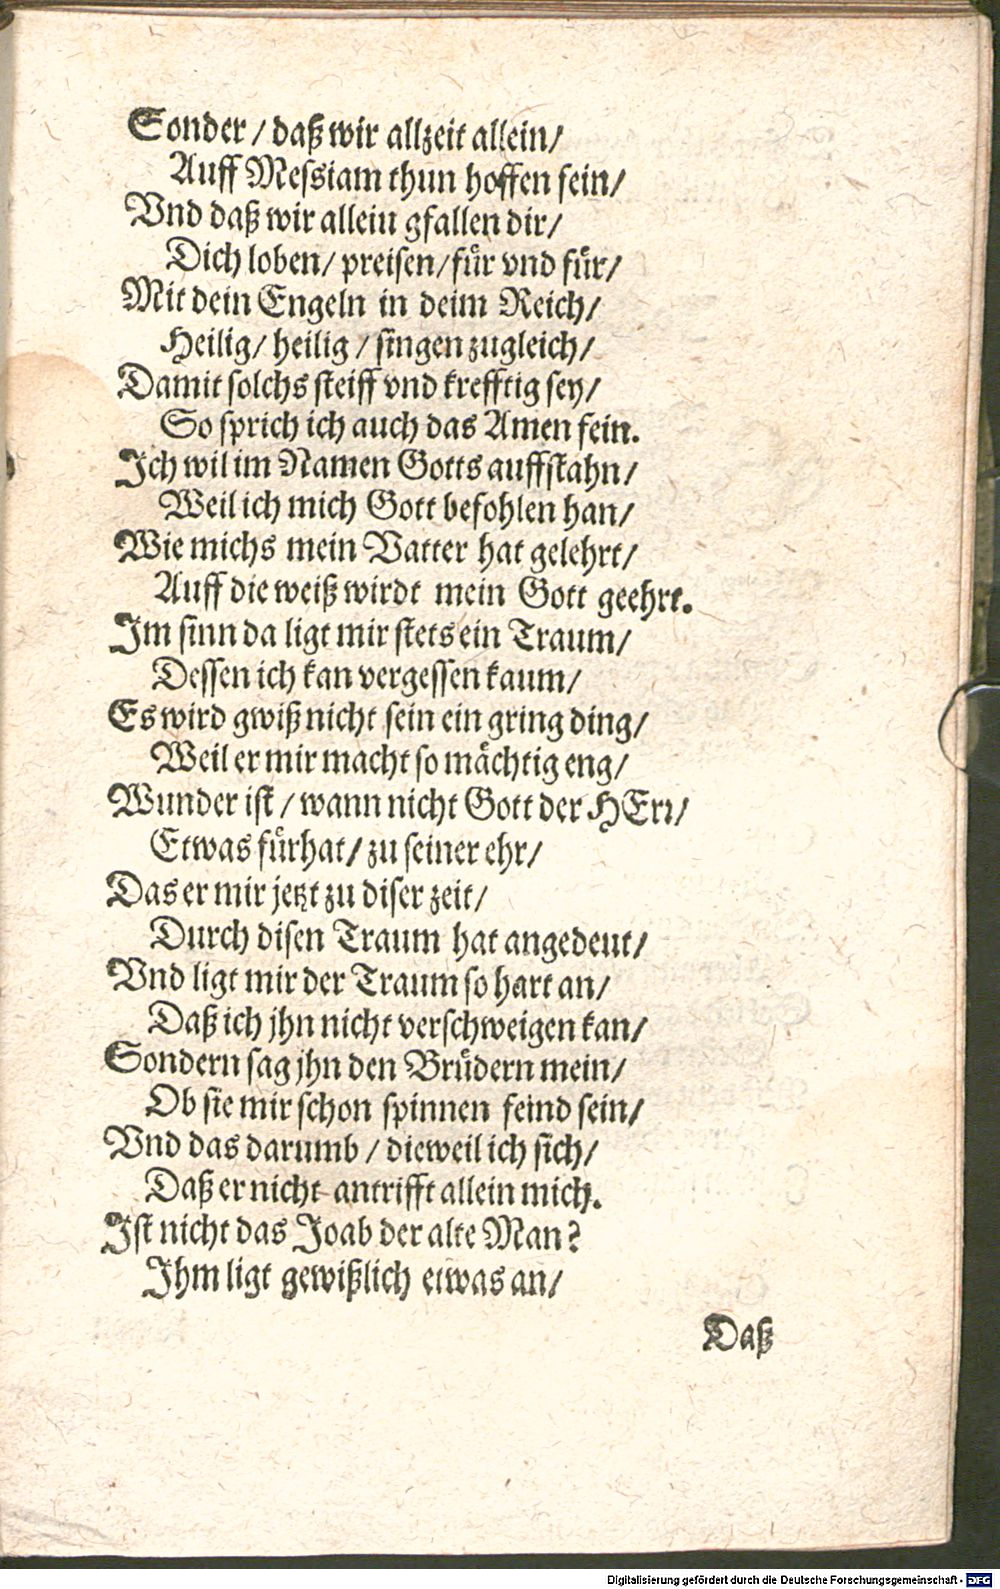 Sonder / daß wir allzeit allein/
Auff Messiam thun hoffen fein/
Vnd daß wir allein gfallen dir/
Dich loben/ preisen/ für vnd für/
Mit dein Engeln in deim Reich/
Heilig/ heilig / singen zugleich/
Damit solchs steiff vnd krefftig sey/
So sprich ich auch das Amen fein.
Ich wil im Namen Gotts auffstahn/
Weil ich mich Gott befohlen han/
Wie michs mein Vatter hat gelehrt/
Auff die weiß wirdt mein Gott geehrt.
Im sinn da ligt mir stets ein Traum/
Dessen ich kan vergessen kaum/
Es wird gwiß nicht sein ein gring ding/
Weil er mir macht so mächtig eng/
Wunder ist / wann nicht Gott der HErr/
Etwas fürhat/ zu seiner ehr/
Das er mir jetzt zu diser zeit/
Durch disen Traum hat angedeut/
Vnd ligt mir der Traum so hart an/
Daß ich jhn nicht verschweigen kan/
Sondern sag jhn den Brüdern mein/
Ob sie mir schon spinnen feind sein/
Vnd das darumb / dieweil ich sich/
Daß er nicht antrifft allein mich.
Ist nicht das Joab der alte Man?
Ihm ligt gewißlich etwas an/
Daß
Digitalisierung gefördert durch die Deutsche Forschungsgemeinschaft - DFG